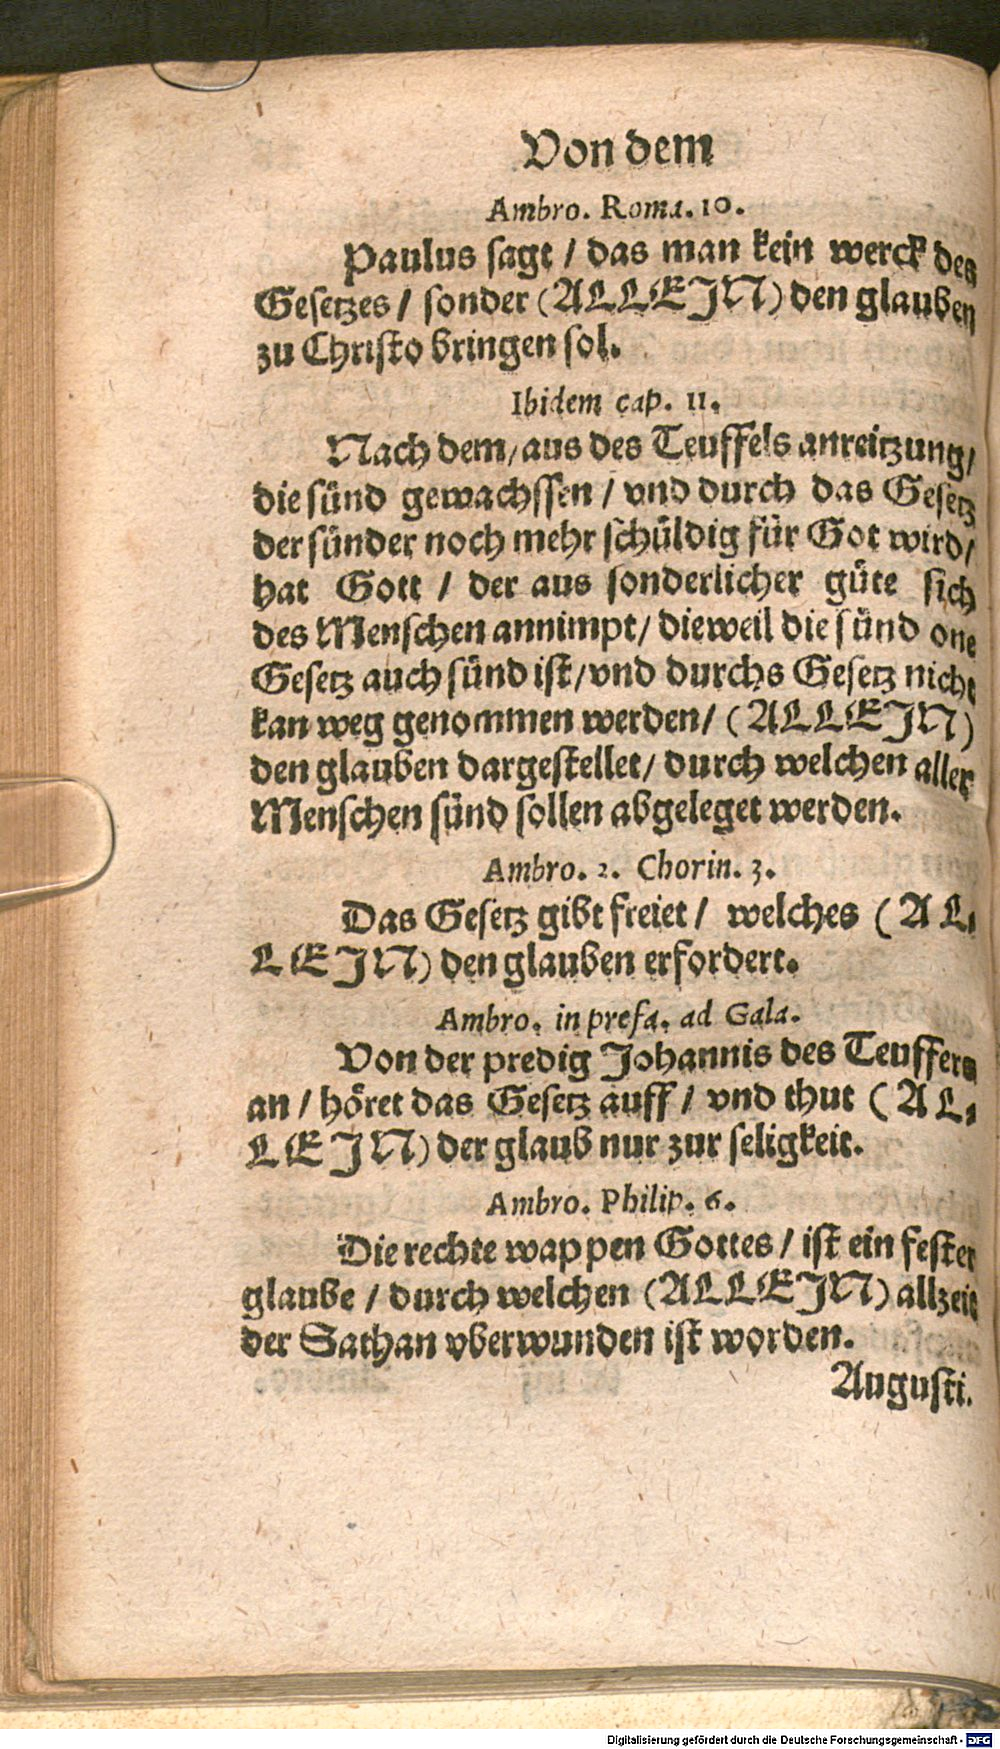 Von dem
Ambro. Roma. 10.
Paulus sagt / das man kein werck des
Gesetzes / sonder (ALLEJN) den glauben
zu Christo bringen sol.
Ibidem cap. 11.
Nach dem / aus des Teuffels anreitzung /
die sünd gewachssen / vnd durch das Gesetz
der sünder noch mehr schüldig für Got wird /
hat Gott / der aus sonderlicher güte sich
des Menschen annimpt / dieweil die sünd one
Gesetz auch sünd ist / vnd durchs Gesetz nicht
kan weg genommen werden / (ALLEJN)
den glauben dargestellet / durch welchen aller
Menschen sünd sollen abgeleget werden.
Ambro. 2. Chorin. 3.
Das Gesetz gibt freiet / welches (AL⸗
LEJN) den glauben erfordert.
Ambro. in prefa. ad Gala.
Von der predig Johannis des Teuffers
an / höret das Gesetz auff / vnd thut (AL⸗
LEJN) der glaub nur zur seligkeit.
Ambro. Philip. 6.
Die rechte wappen Gottes / ist ein fester
glaube / durch welchen (ALLEJN) allzeit
der Sathan vberwunden ist worden.
Augusti.
Digitalisierung gefördert durch die Deutsche Forschungsgemeinschaft - DFG